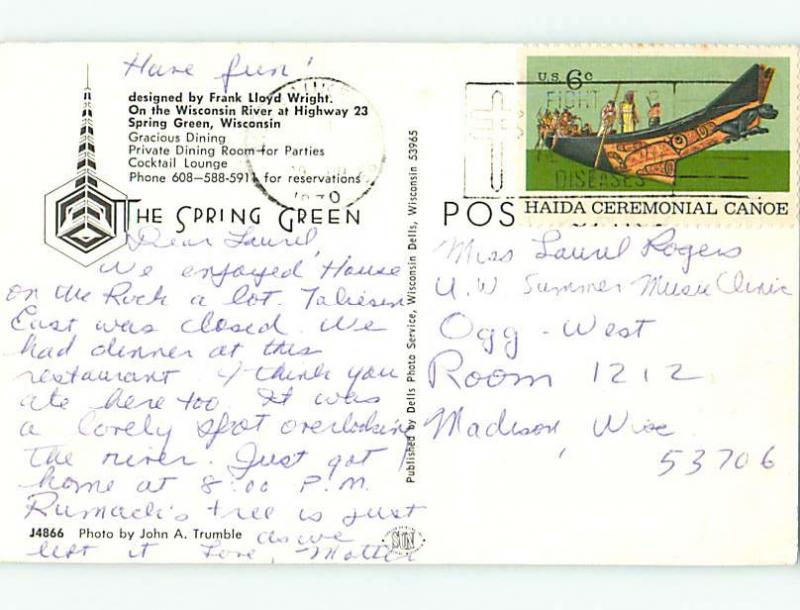 Have fun!
designed by Frank Lloyd Wright.
On the Wisconsin River at Highway 23
Spring Green, Wisconsin
Gracious Dining
Private Dining Room for Parties
Cocktail Lounge
Phone 608-588-591 for reservations
THE SPRING GREEN
Dear Laurel,
We enjoyed House
on the Rock a lot. Taliesen
East was closed. We
had dinner at this
restaurant. I think you
ate here too. It was
a lovely spot overlooking
the river. Just got
home at 8:00 P.M.
tree is just
as we
left it Love, Mother
J4866 Photo by John A. Trumble
Published by Dells Photo Service, Wisconsin Dells, Wisconsin 53965
U.S. 6c
FIGHT
DISEASES
1970
HAIDA CEREMONIAL CANOE
POS
Miss Laurel Rogers
U.W Summer Music Clinic
Ogg - West
Room 1212
Madison, Wisc
53706